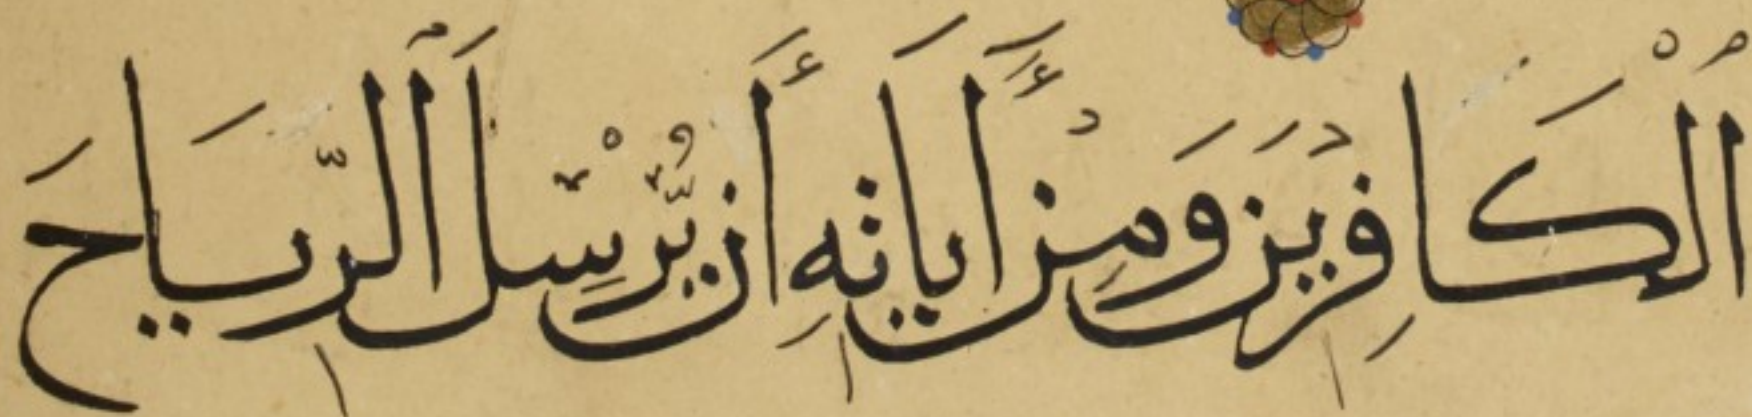 ٱلْكَافِرِينَ وَمِنْ أَيَاتِهِ أَن يُّرْسِلَ ٱلرِّيَاحَ